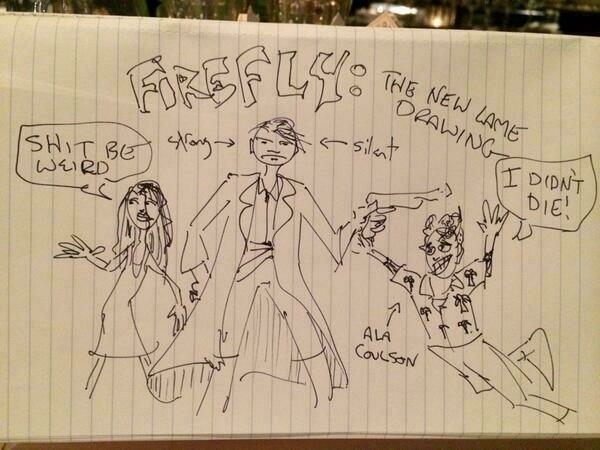 FIREFLY:
THE NEW LAME
DRAWING
SHIT BE
WEIRD
strong
silent
I DIDN'T
DIE!
ALA
COULSON